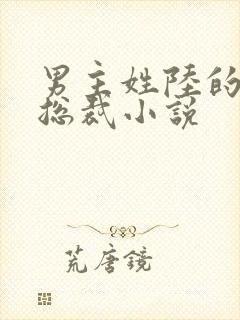 男主姓陸的
总裁小説
荒唐鏡